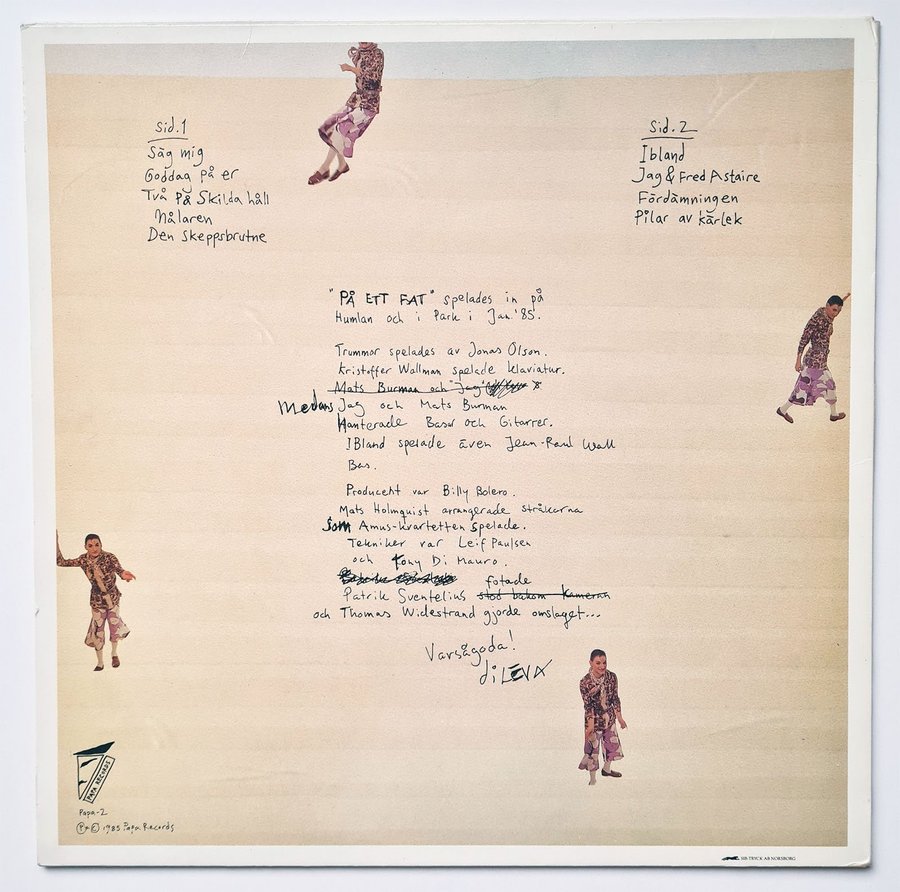 Sid.1
Säg mig
Goddag på er
Två på Skilda håll
Målaren
Den skeppsbrutne
Sid.2
Ibland
Jag & Fred Astaire
Fördämningen
Pilar av kärlek
"PÅ ETT FAT" spelades in på
Humlan och i Park i Jan.'85.
Trummor spelades av Jonas Olson.
Kristoffer Wallman spelade klaviatur.
Mats Burman och Jag
Medans Jag och Mats Burman
Hanterade Basar och Gitarrer.
IBland spelade även Jean-Paul Wall
Bas.
Producent var Billy Bolero.
Mats Holmquist arrangerade stråkarna
Som Amus-kvartetten spelade.
Tekniker var Leif Paulsen
och Tony Di Mauro.
fotade
Patrik Sventelius stod bakom Kameran
och Thomas Widestrand gjorde omslaget...
Varsågoda!
diLEVA
PAPA RECORDS
Papa-2
Ⓟ+© 1985 Papa Records
SIB-TRYCK AB NORSBORG